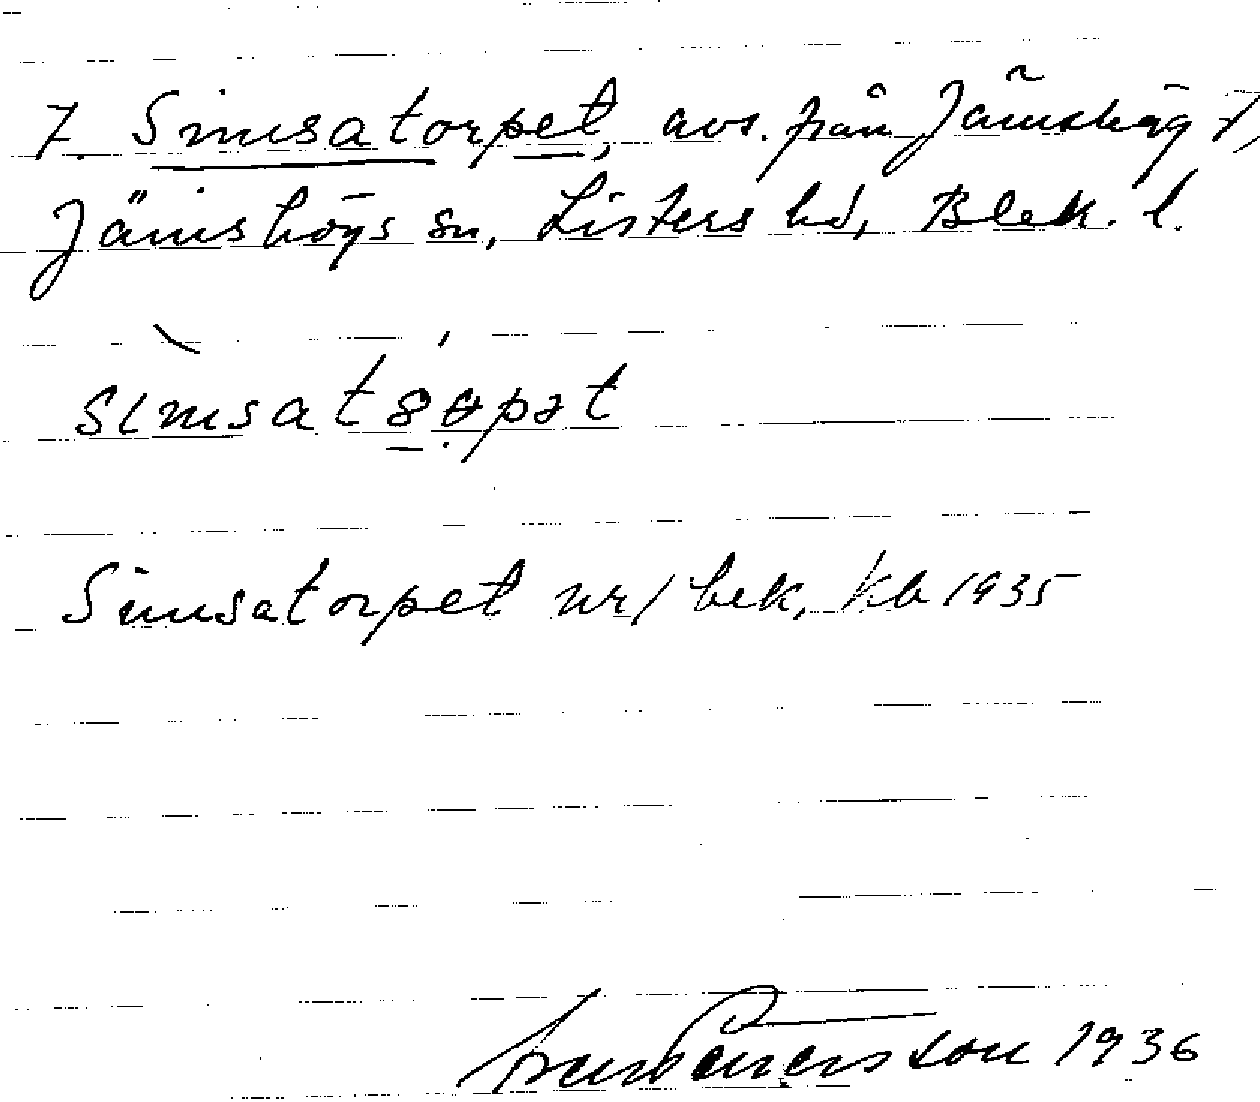 7. Simsatorpet, avs. från Jämshög 7,
Jämshögs sn, Listers hd, Blek. l.
sìmsatŏ́pət
Simsatorpet nr/ bek. kb 1935
1936